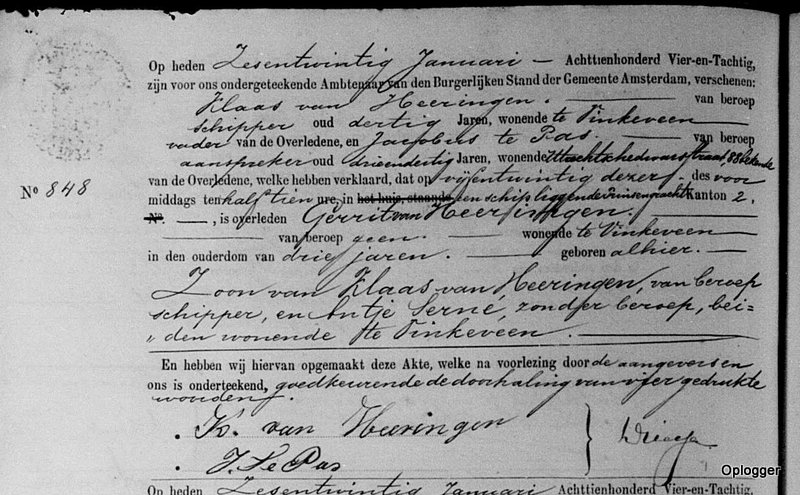 Op heden Zesentwintig Januari — Achttienhonderd Vier-en-Tachtig,
zijn voor ons ondergeteekende Ambtenaar van den Burgerlijken Stand der Gemeente Amsterdam, verschenen:
Klaas van Heeringen. — van beroep
schipper oud dertig Jaren, wonende te Vinkeveen
vader van de Overledene, en Jacobus te Pas. — van beroep
aanspreker oud drieendertig Jaren, wonende Utrechtschedwarsstraat, 88 bekende
van de Overledene, welke hebben verklaard, dat op Vijfentwintig dezer des voor
No 848
middags ten half tien ure, in het huis, staande een schip liggende Prinsengracht Kanton 2.
No. —, is overleden Gerrit van Heeringen. —
— van beroep geen. — wonende te Vinkeveen
in den ouderdom van drie jaren. — geboren alhier. —
Zoon van Klaas van Heeringen, van beroep
schipper, en Antje Serné, zonder beroep, bei=
„ den wonende te Vinkeveen. —
En hebben wij hiervan opgemaakt deze Akte, welke na voorlezing door de aangevers en
ons is onderteekend, goedkeurende de doorhaling van vijf gedrukte
woorden.
K. van Heeringen
J. te Pas
Oplogger
Op heden Zesentwintig Januari Achttienhonderd Vier-en-Tachtig,